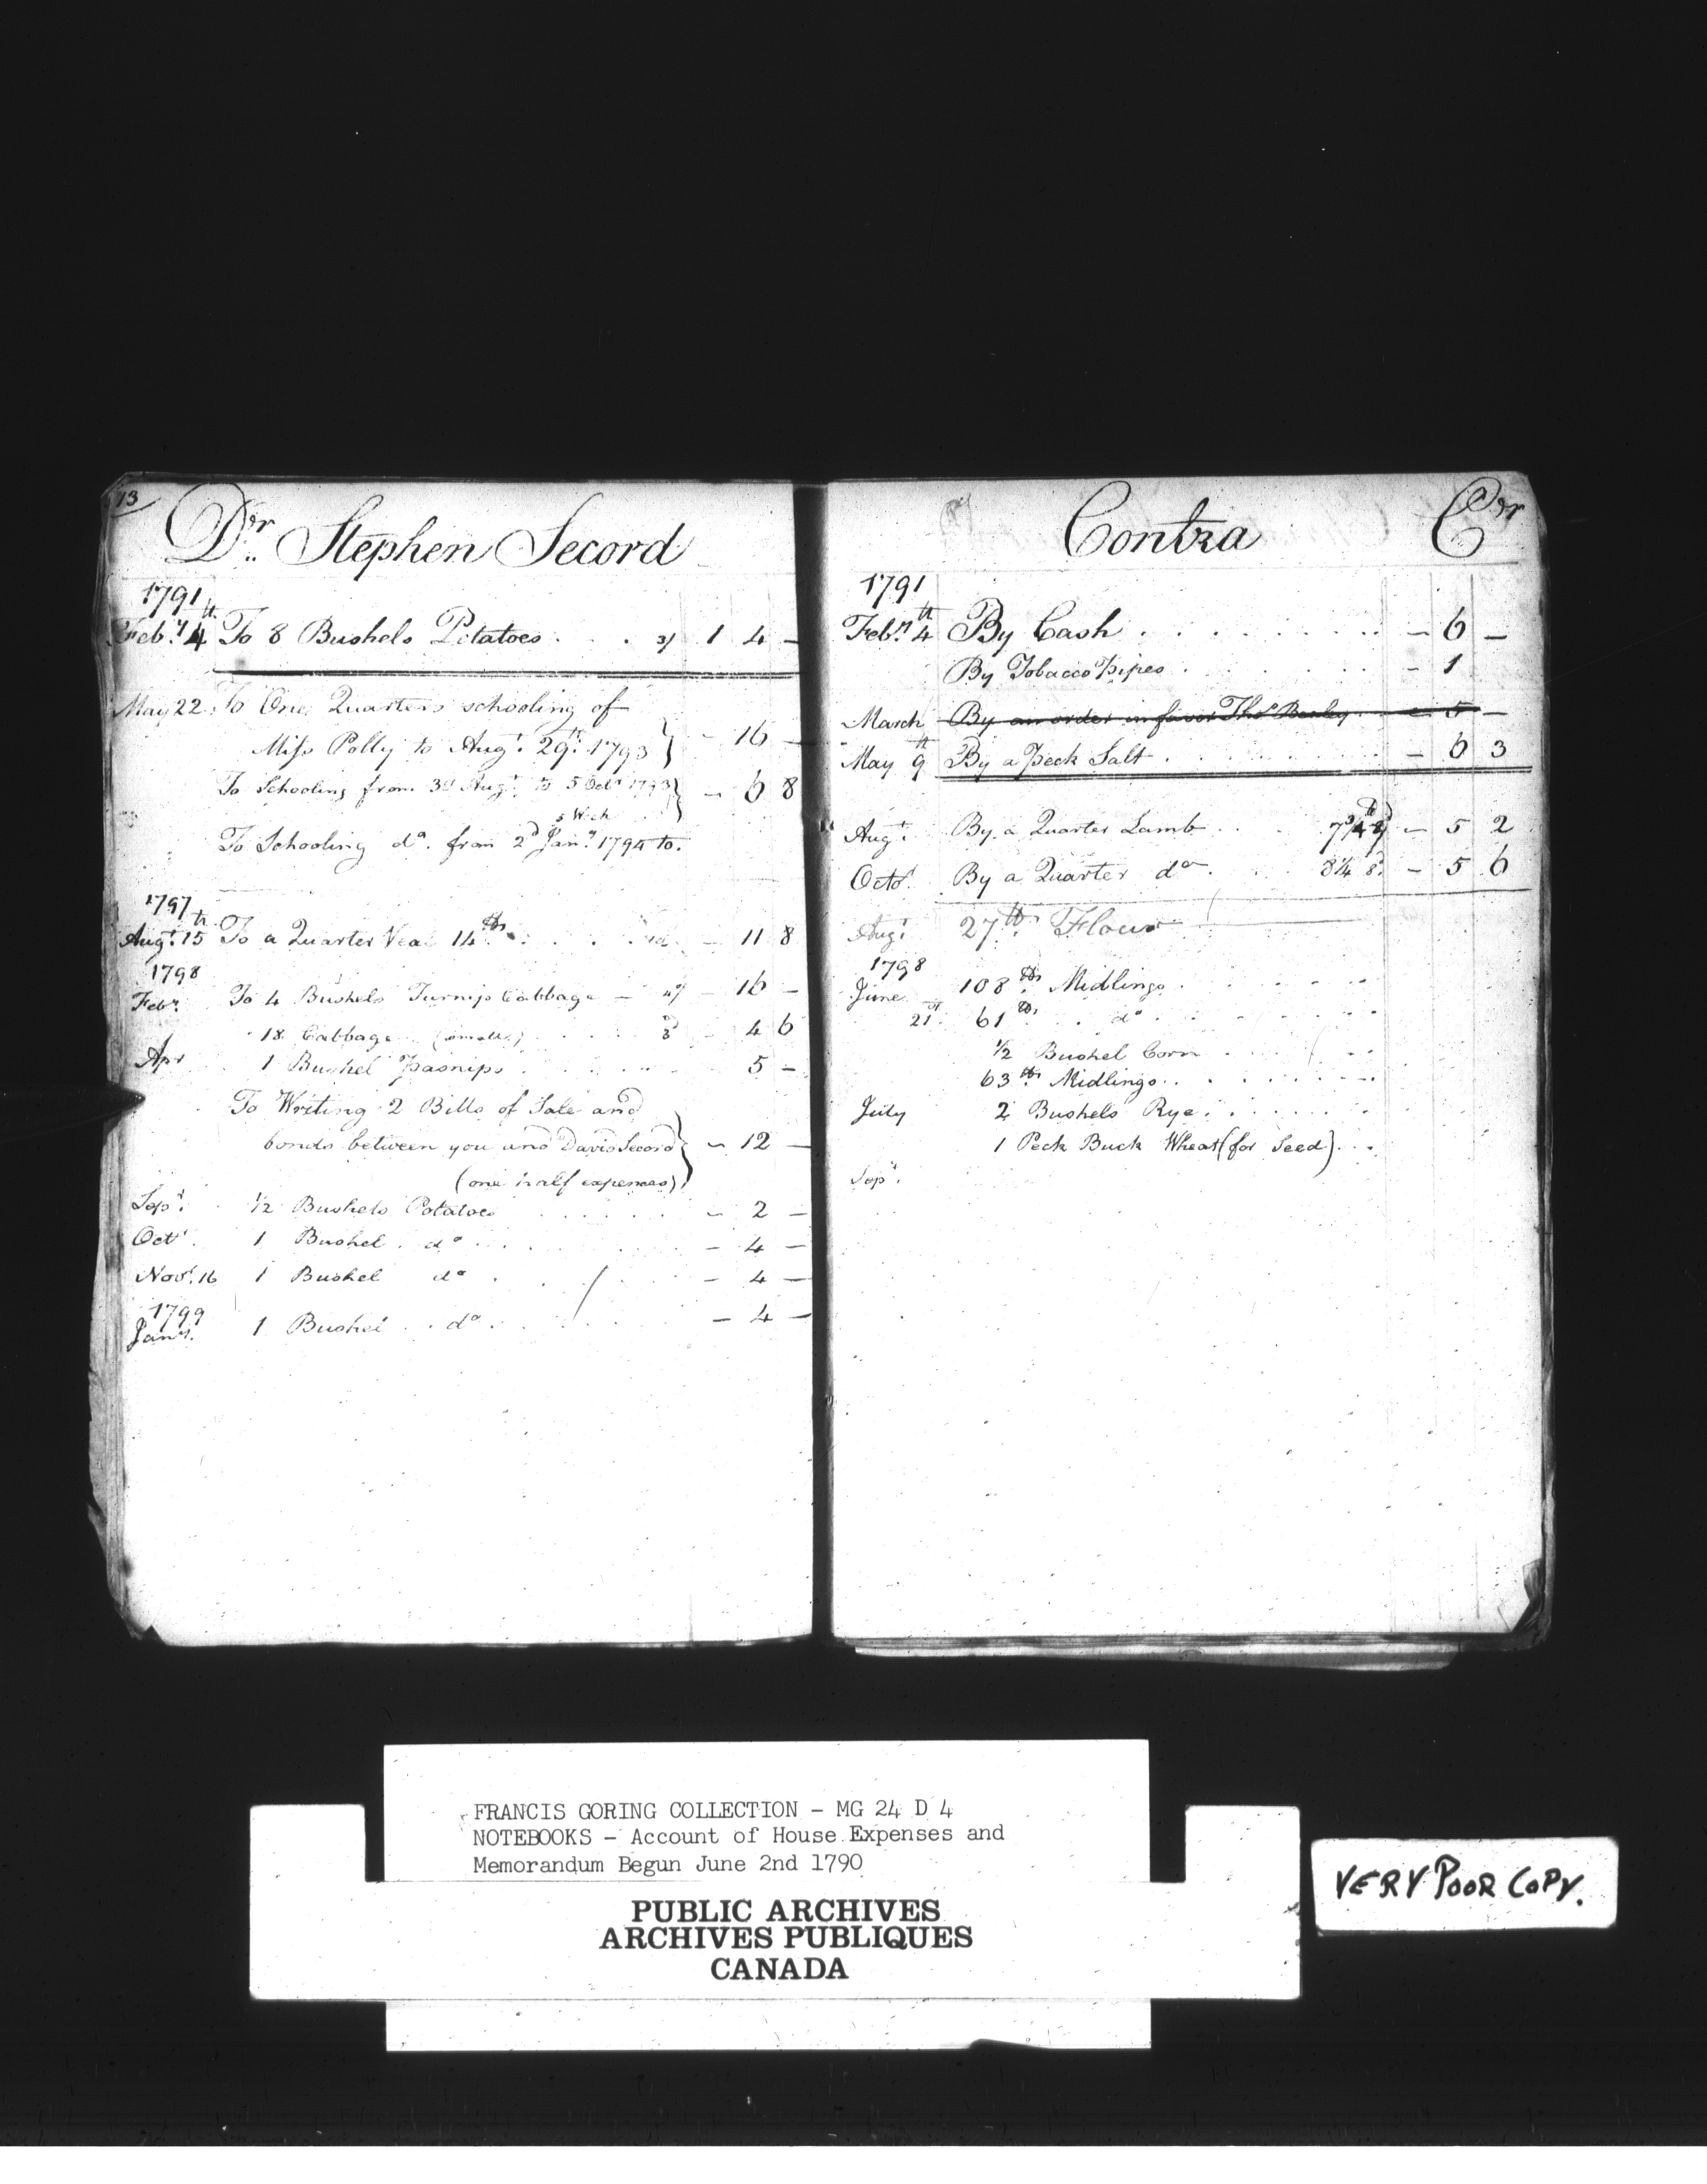 13
Dr. Stephen Secord
1791
Feby 4th To 8 Bushels Potatoes . . . 3/ 1 4 —
May 22 To One Quarters schooling of
Miss Polly to Augt. 29th. 1793 } - 16 —
To Schooling from 30 Augt. to 5 Octr 1793 } - 6 8
5 Week
To Schooling do. from 2d Jany. 1794 to.
1797
Augt. 15th To a Quarter Veal 14 lbs . . . 10d. - 11 8
1798
Feby. To 4 Bushels Turnip Cabbage — 4/ - 16 —
18 Cabbage (small) . . . 3d - 4 6
Apr 1 Bushel Pasnips . . . 5 -
To Writing 2 Bills of Sale and
bonds between you and David Secord } - 12 —
(one half expences)
Sepr. 1/2 Bushels Potatoes . . . - 2 —
Octr. 1 Bushel . do . . . - 4 —
Novr. 16 1 Bushel do . . . - 4 —
1799
Jany. 1 Bushel . . do . . . - 4 —
Contra Cr
1791
Feby. 4th By Cash . . . - 6 —
By Tobacco Pipes . . . - 1
March By an order in favor Thos - 5 —
May 9th By a Peck Salt . . . - 6 3
Augt. By a Quarter Lamb . . . 7 3/4 lb - 5 2
Octr. By a Quarter do . . . 8 1/4 8d. - 5 6
Augt. 27 lb. Flour
1798
June 108 lbs Midlings . . .
21st. 61 lbs. . . do . . .
1/2 Bushel Corn . . .
63 lbs. Midlings . . .
July 2 Bushels Rye . . .
1 Peck Buck Wheat (for Seed) . . .
Sepr.
FRANCIS GORING COLLECTION - MG 24 D 4
NOTEBOOKS - Account of House Expenses and
Memorandum Begun June 2nd 1790
PUBLIC ARCHIVES
ARCHIVES PUBLIQUES
CANADA
VERY POOR COPY.